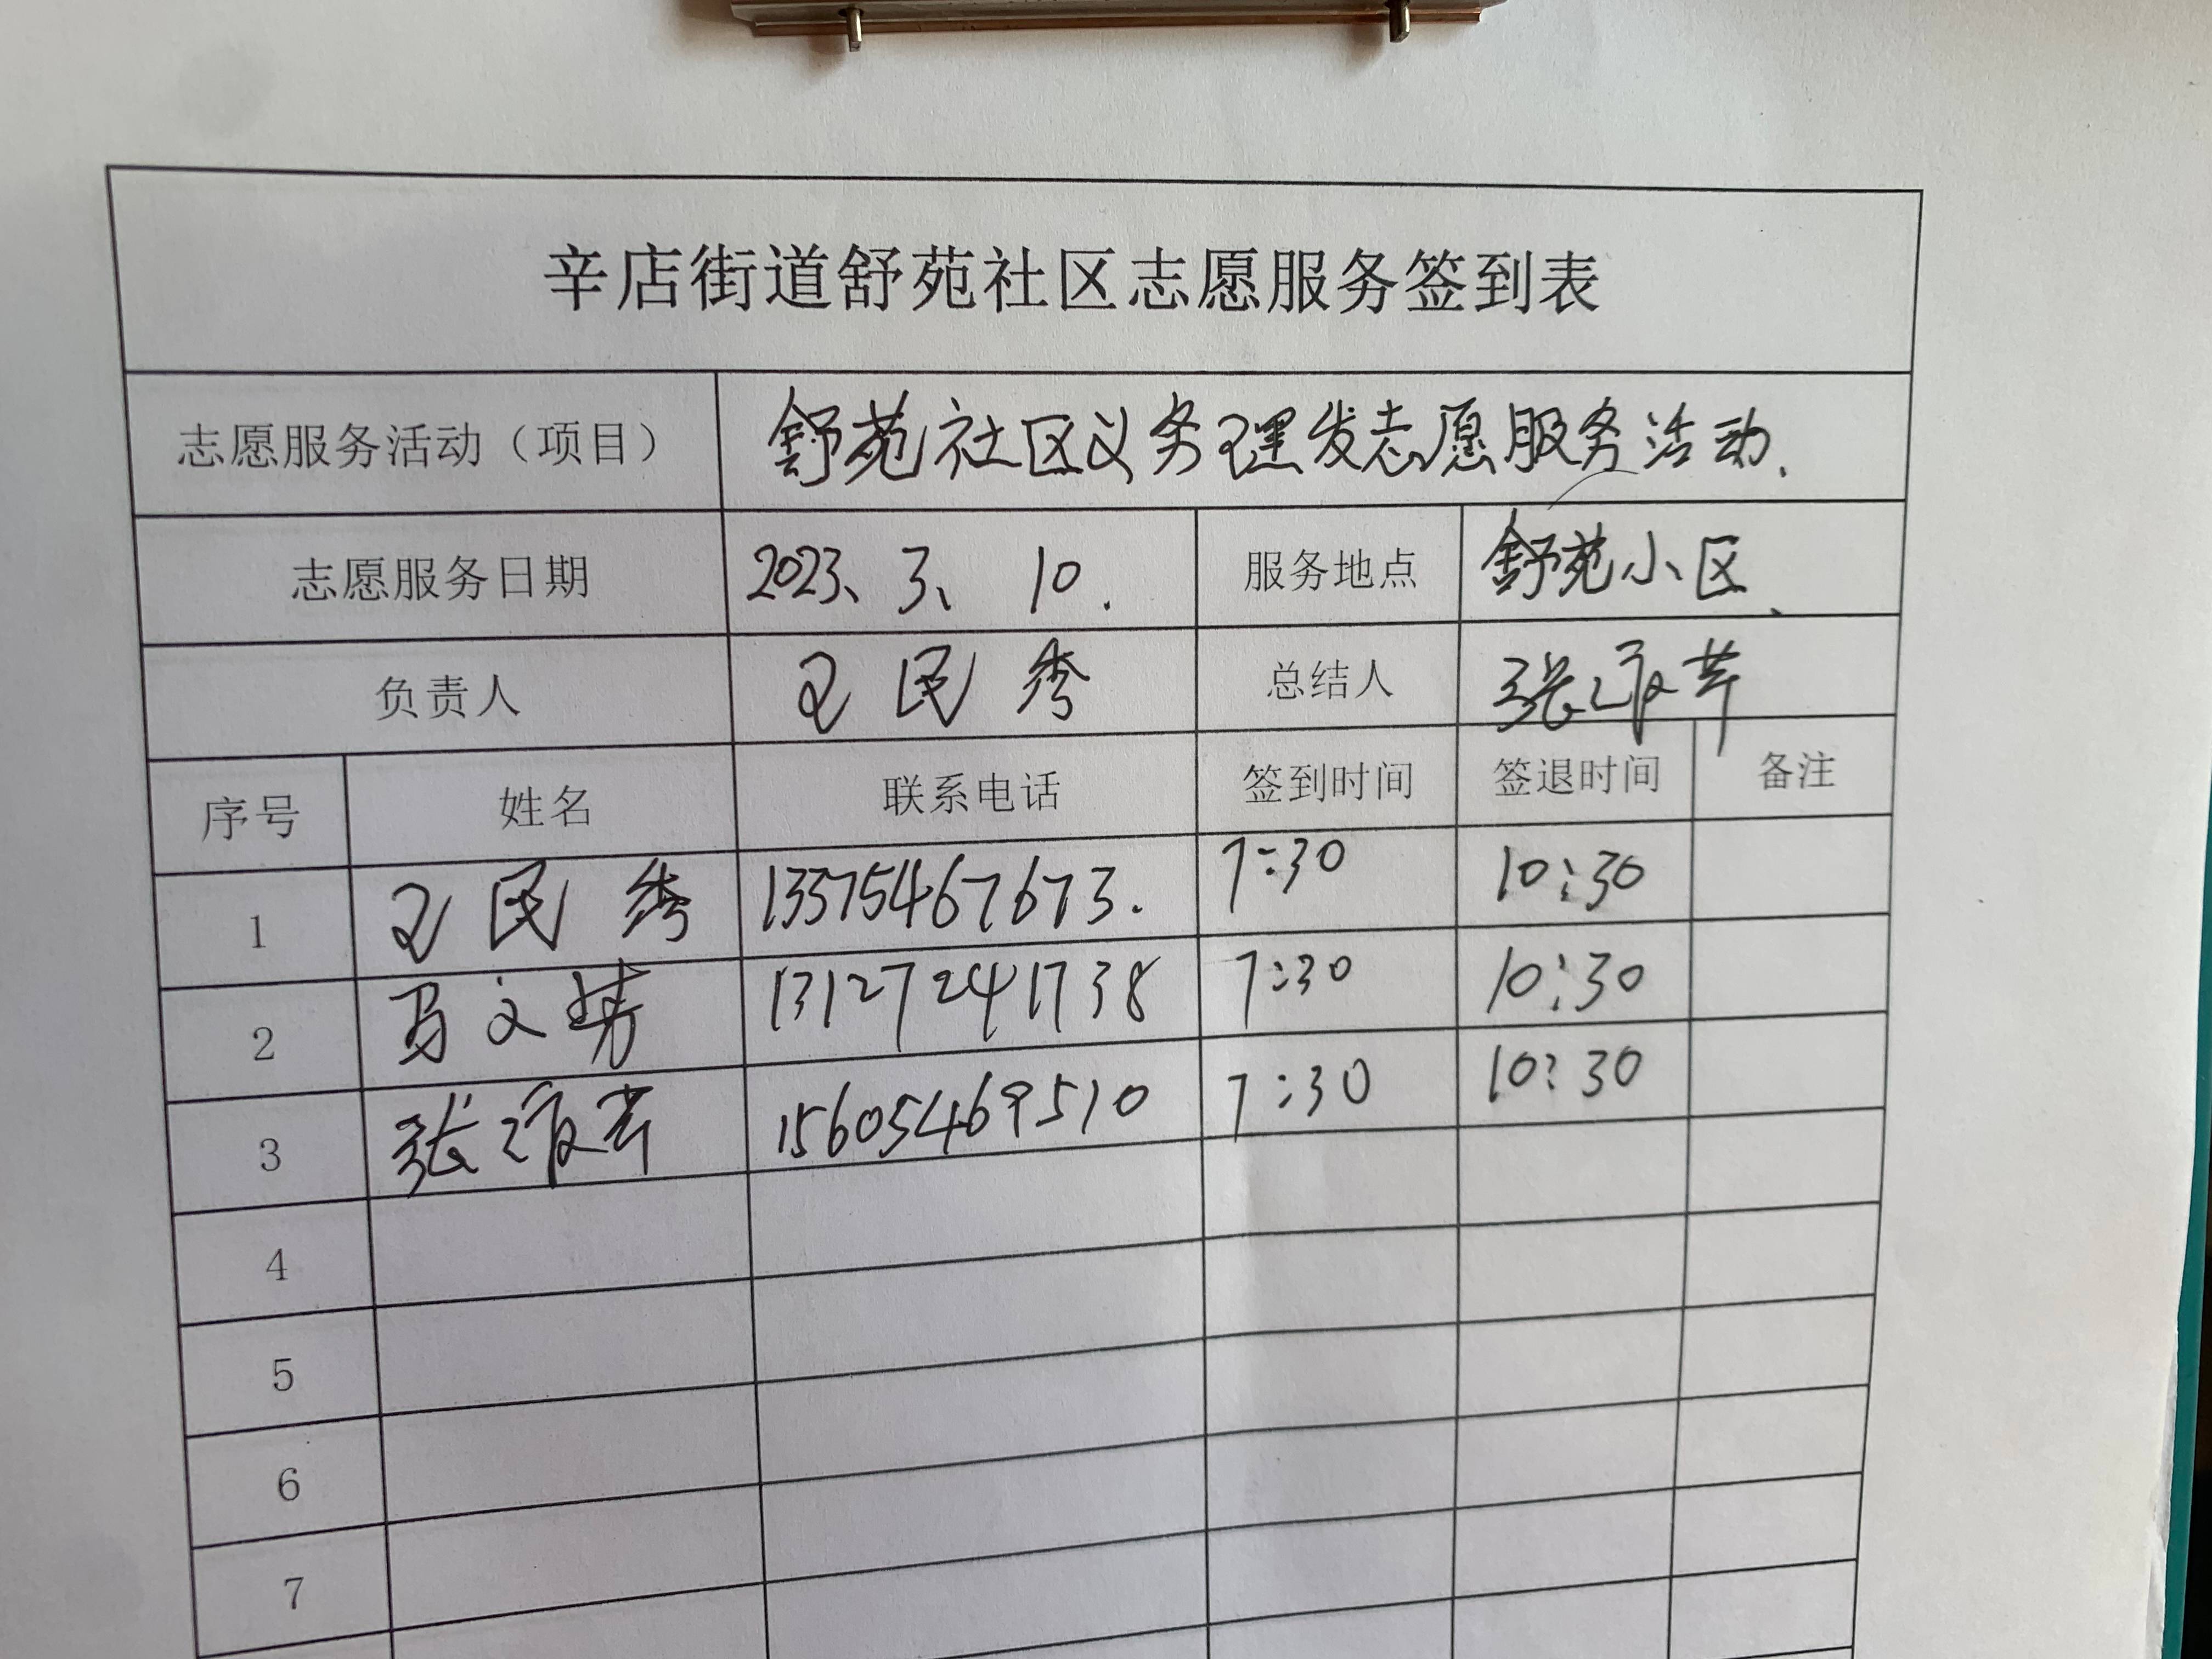 辛店街道舒苑社区志愿服务签到表
志愿服务活动（项目） 舒苑社区义务理发志愿服务活动.
志愿服务日期 2023、3、10. 服务地点 舒苑小区、
负责人 王民秀 总结人 张
序号 姓名 联系电话 签到时间 签退时间 备注
1 王民秀 13375467673. 7:30 10:30
2 马文 13127241738 7:30 10:30
3 张 15605469510 7:30 10:30
4
5
6
7